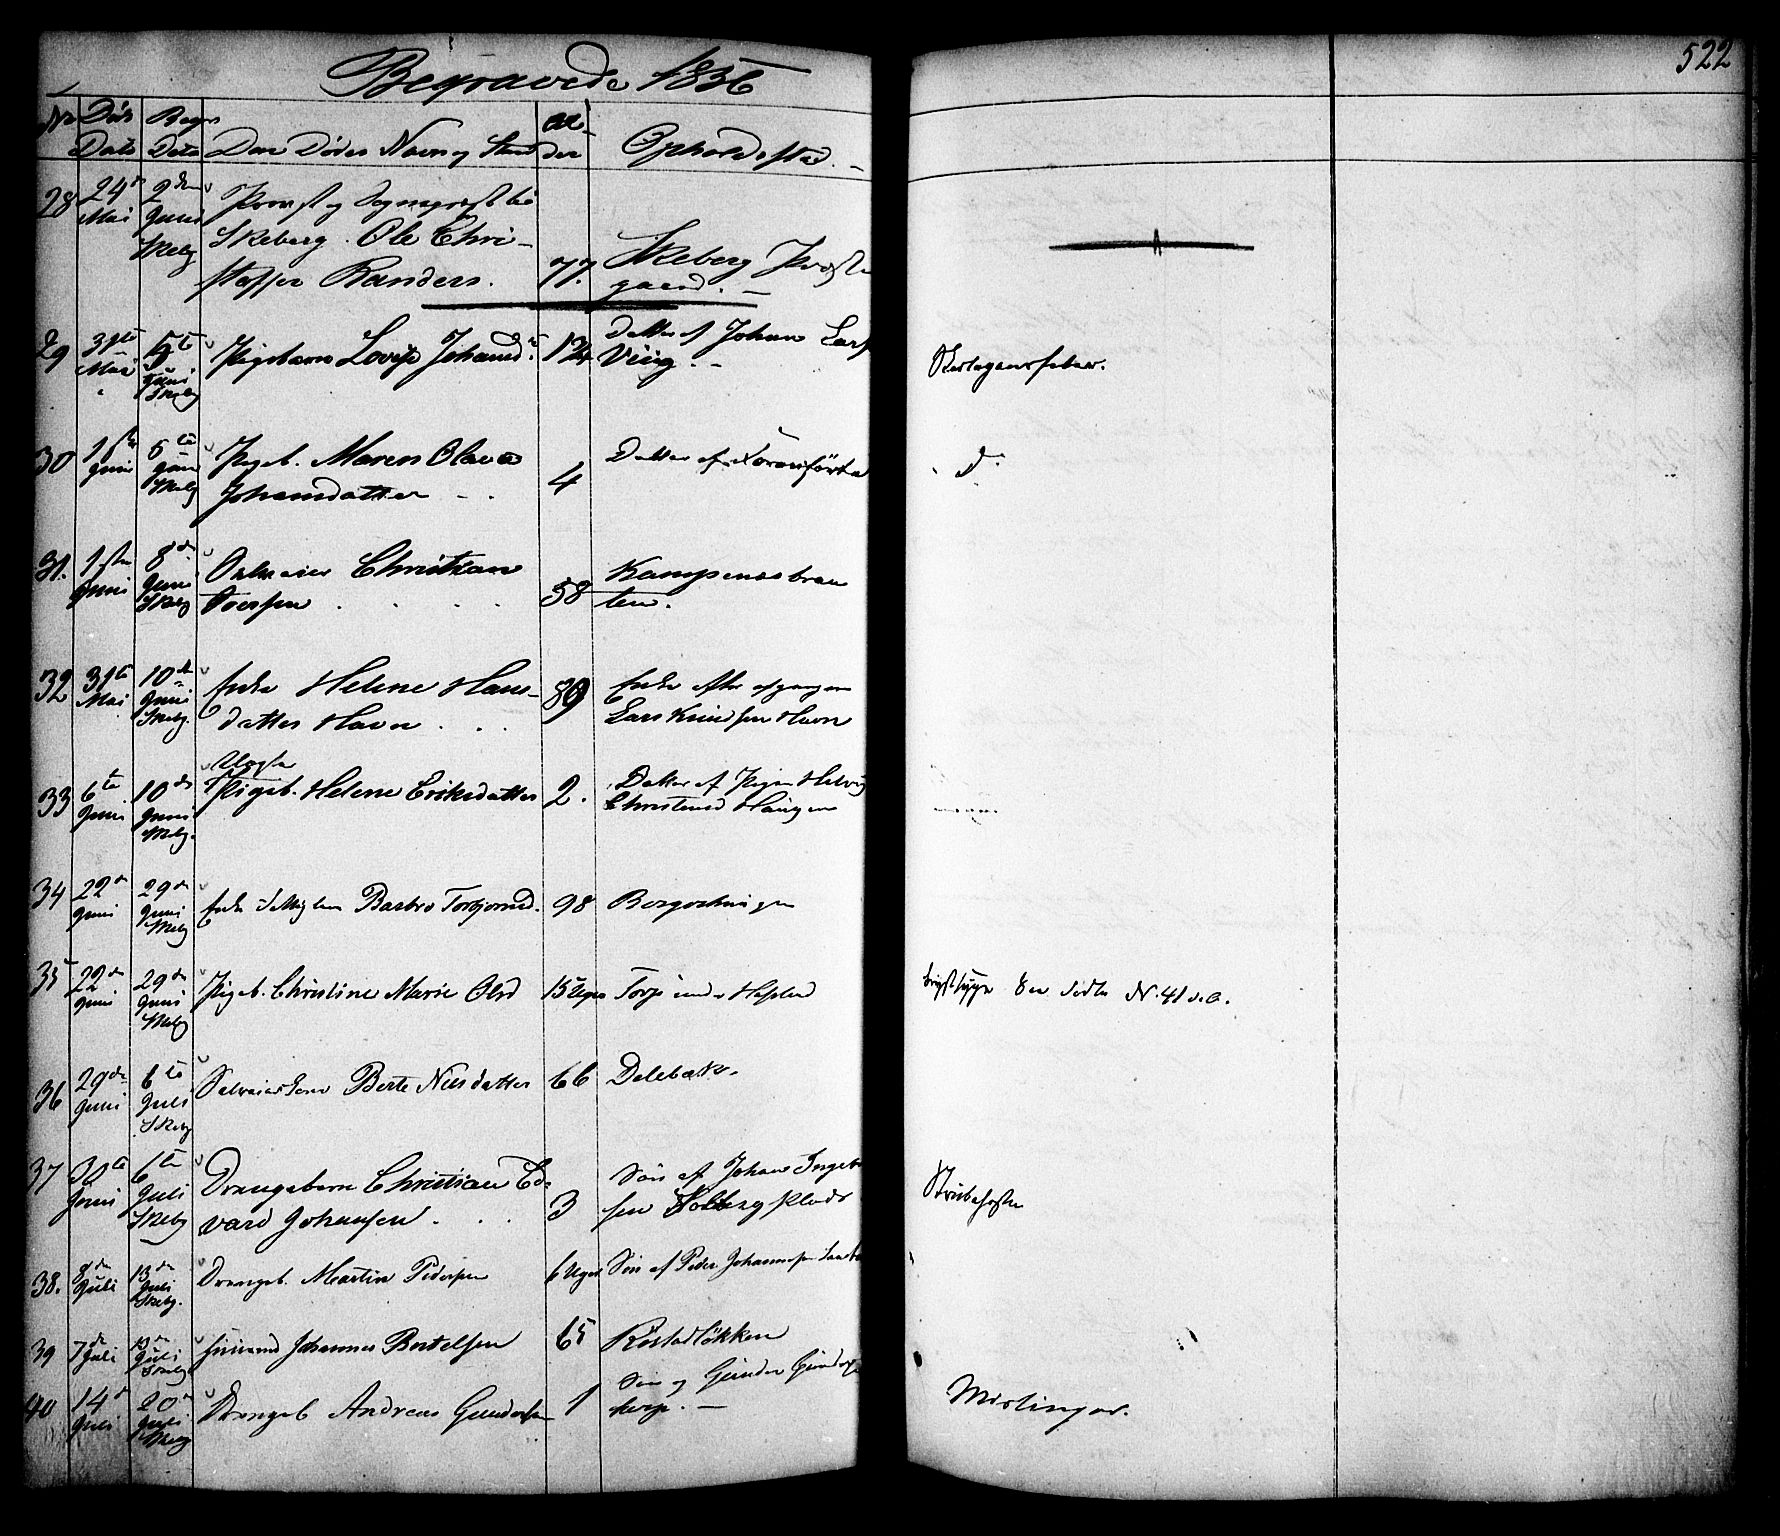 522
Begravede 1856
No Døds Dato Begr. Dato Den Dødes Navn og Stand Alder Opholdsstad.
28 24de Mai 2den Juni Skebg Provst og Sognepræst til
Skeberg. Ole Chri-
stoffer Randers. 77. Skeberg Præste
gaard.
29 31te Mai 5te Juni Skebg Pigebarn Lovise Johansd. Datter af Johan Lars
Viig. Skarlagensfeber.
30 1ste Juni 5te Juni Skebg Pigeb. Maren Olava
Johansdatter 4 Datter af Foranførte do
31. 1ste Juni 8de Juni Skebg Christian
Iversen 58 Kampenesbraa
ten.
32 31te Mai 10de Juni Skebg. Enke Helene Hans-
datter Havn 89 Enke efter afgangne
Lars Knudsen Havn
33 6te Juni 10de Juni Skebg. Uægte
Pigeb. Helene Eriksdatter 2. Datter af Pigen
Christensd Haugen
34 22de Juni 29de Juni Skebg Enke Barbro Torbjørnsd. 98
35 22de Juni 29de Juni Skebg Pigeb. Christine Marie Olsd 15 Uger Torp under Hafslund Brystsyge See Sedlen N. 41 d. A.
36 29de Juni 6te Juli Skebg Berte Nilsdatter 66 Delebæk.
37 30te Juni 6te Juli Skebg Drengebarn Christian Ed-
vard Johansen. 3 Søn af Johan Ingeb
sen Solberg Plads Strubehoste
38. 8de Juli 13de Juli Skebg. Drengeb. Martin Pedersen 6 Uger Søn af Peder Johannesen
39 7de Juli 13de Juli Skebg Johannes Bertelsen 65 Röstadløkken
40 14de Juli 20de Juli Skebg Drengeb Andreas Gundersen 1 Søn af Gunder Gunders
Torp. Meslinger.